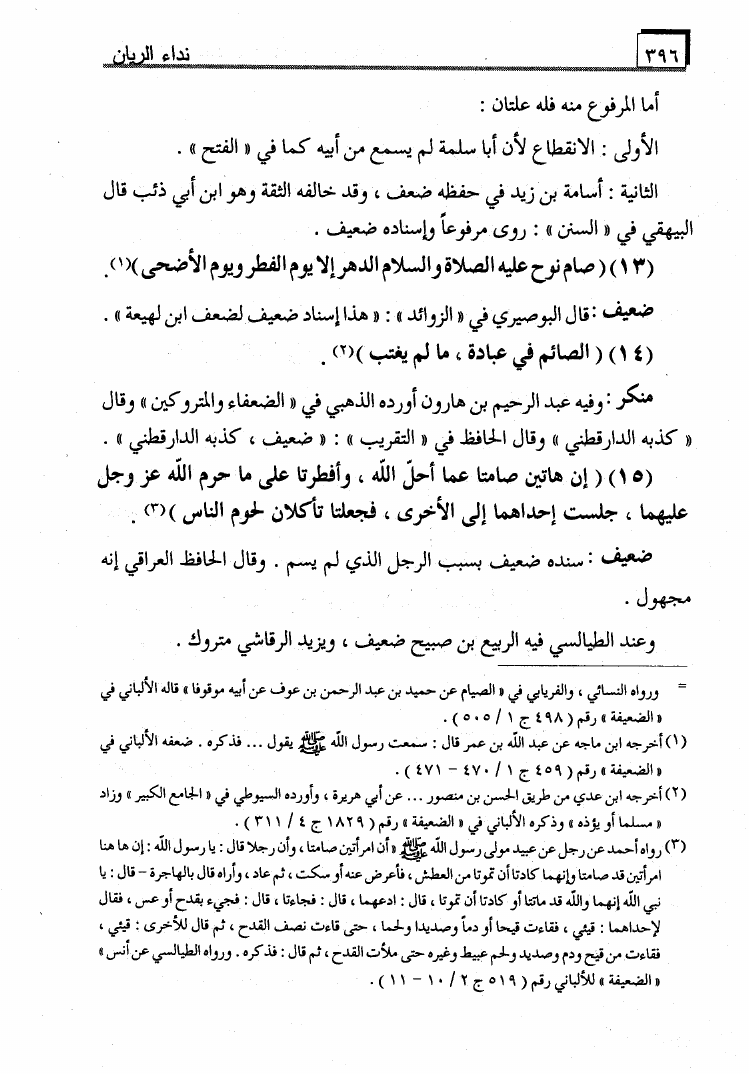 ٣٩٦
نداء الريان
أما المرفوع منه فله علتان :
الأولى : الانقطاع لأن أبا سلمة لم يسمع من أبيه كما في « الفتح » .
الثانية : أسامة بن زيد في حفظه ضعف ، وقد خالفه الثقة وهو ابن أبي ذئب قال
البيهقي في « السنن » : روى مرفوعاً وإسناده ضعيف .
(١٣) ( صام نوح عليه الصلاة والسلام الدهر إلا يوم الفطر ويوم الأضحى )(١) .
ضعيف : قال البوصيري في « الزوائد » : « هذا إسناد ضعيف لضعف ابن لهيعة » .
(١٤) ( الصائم في عبادة ، ما لم يغتب )(٢) .
منكر : وفيه عبد الرحيم بن هارون أورده الذهبي في « الضعفاء والمتروكين » وقال
« كذبه الدارقطني » وقال الحافظ في « التقريب » : « ضعيف ، كذبه الدارقطني » .
(١٥) ( إن هاتين صامتا عما أحلّ اللّه ، وأفطرتا على ما حرم اللّه عز وجل
عليهما ، جلست إحداهما إلى الأخرى ، فجعلتا تأكلان لحوم الناس )(٣) .
ضعيف : سنده ضعيف بسبب الرجل الذي لم يسم . وقال الحافظ العراقي إنه
مجهول .
وعند الطيالسي فيه الربيع بن صبيح ضعيف ، ويزيد الرقاشي متروك .
= ورواه النسائي ، والفريابي في « الصيام عن حميد بن عبد الرحمن بن عوف عن أبيه موقوفا » قاله الألباني في
« الضعيفة » رقم ( ٤٩٨ ج ١ / ٥٠٥ ) .
(١) أخرجه ابن ماجه عن عبد الله بن عمر قال : سمعت رسول الله ﷺ يقول ... فذكره . ضعفه الألباني في
« الضعيفة » رقم ( ٤٥٩ ج ١ / ٤٧٠ – ٤٧١ ) .
(٢) أخرجه ابن عدي من طريق الحسن بن منصور ... عن أبي هريرة ، وأورده السيوطي في « الجامع الكبير » وزاد
« مسلما أو يؤذه » وذكره الألباني في « الضعيفة » رقم ( ١٨٢٩ ج ٤ / ٣١١ ) .
(٣) رواه أحمد عن رجل عن عبيد مولى رسول الله ﷺ « أن امرأتين صامتا ، وأن رجلا قال : يا رسول الله : إن ها هنا
امرأتين قد صامتا وإنهما كادتا أن تموتا من العطش ، فأعرض عنه أو سكت ، ثم عاد ، وأراه قال بالهاجرة – قال : يا
نبي الله إنهما والله قد ماتتا أو كادتا أن تموتا ، قال : ادعهما ، قال : فجاءتا ، قال : فجيء بقدح أو عس ، فقال
لإحداهما : قيئي ، فقاءت قيحا أو دماً وصديدا ولحما ، حتى قاءت نصف القدح ، ثم قال للأخرى : قيئي ،
فقاءت من قيح ودم وصديد ولحم عبيط وغيره حتى ملأت القدح ، ثم قال : فذكره . ورواه الطيالسي عن أنس »
« الضعيفة » للألباني رقم ( ٥١٩ ج ٢ / ١٠ – ١١ ) .